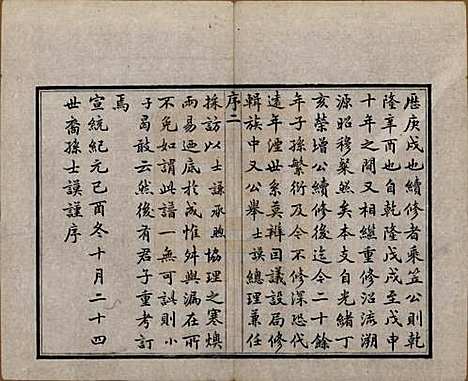 歷庚戌也續修者乘笠公則乾
隆辛酉也自乾隆戊戌至戊申
十年之間又相繼重修沿流溯
源昭穆葉然矣本支自光緒丁
亥榮增公續修後迄今二十餘
年子孫繁衍及今不修深恐代
遠年湮世系莫辨因議設局修
輯族中又公舉士謨總理兼任
序二
採訪以士謙承煦協理之寒燠
兩易迺底於成惟舛與漏在所
不免如謂此譜一無可誤則小
子曷敢云然後有君子重考訂
焉
宣統紀元己酉冬十月二十四
世裔孫士謨謹序